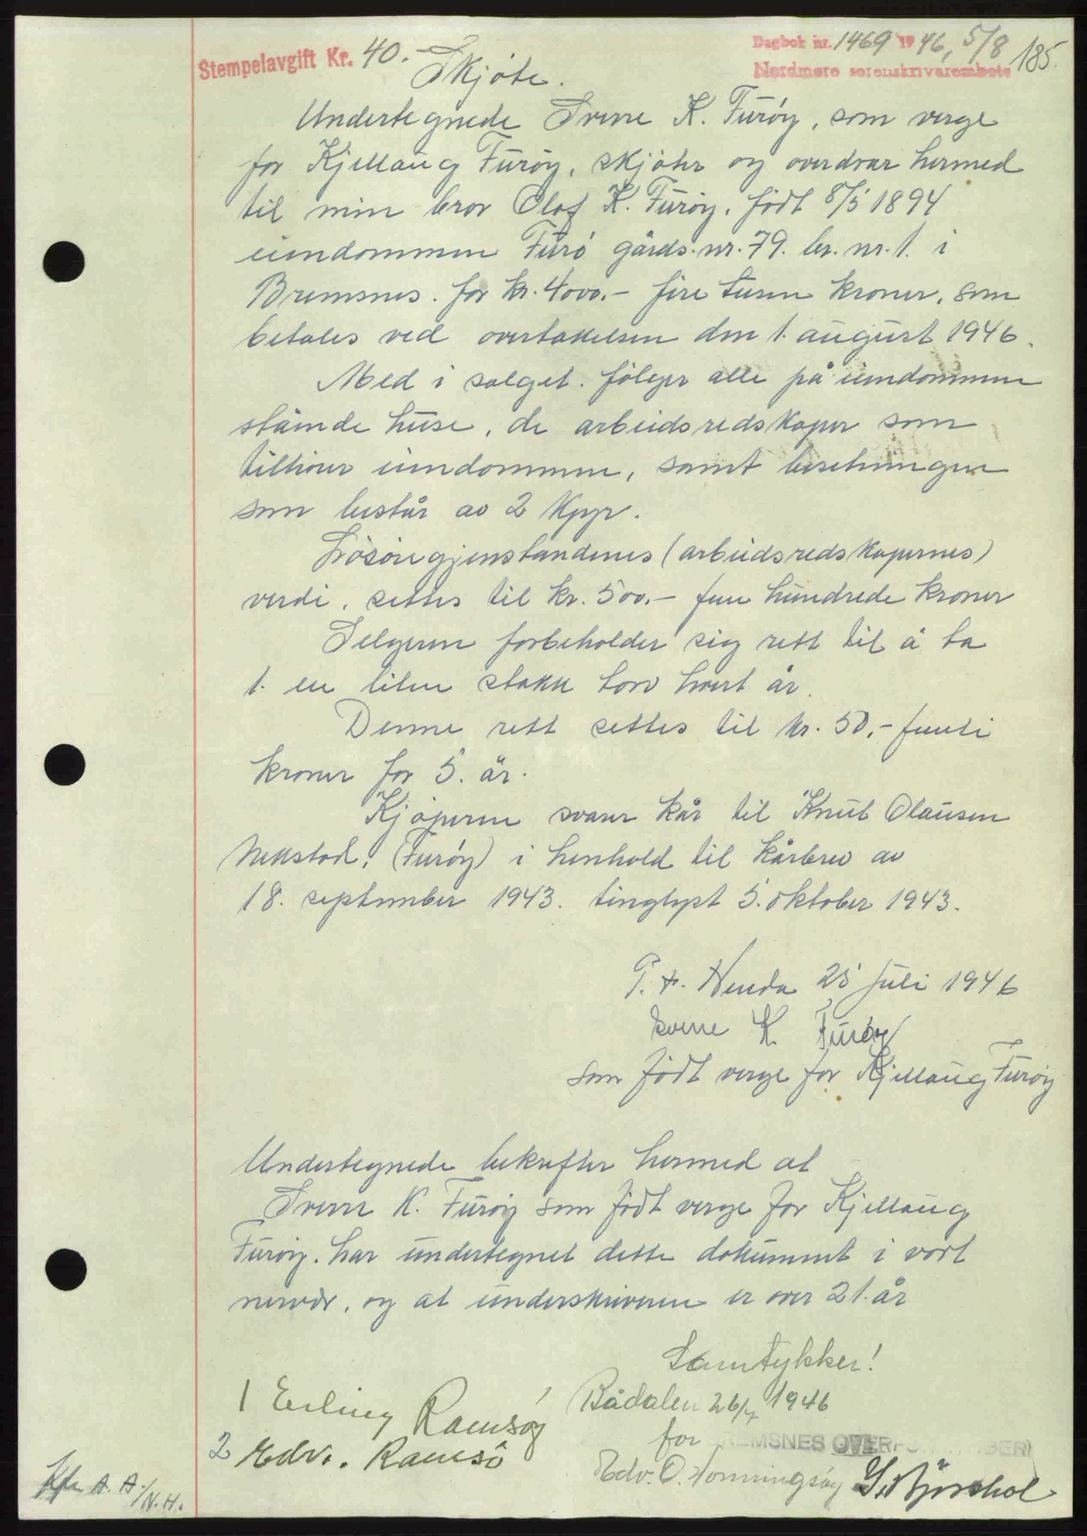 Stempelavgift Kr. 40.-
Dagbok nr. 1469 1946, 5/8
Nordmøre sorenskriverembete
185.
Skjøte.
Undertegnede Sverre K. Furøy, som verge
for Kjellaug Furøy, skjøter og overdrar hermed
til min bror Olaf K. Furøy, født 8/5 1894
eiendommen Furø gårds.nr. 79. br. nr. 1. i
Bremsnes. for kr. 4000.- fire tusen kroner, som
betales ved overtakelsen den 1. august 1946.
Med i salget. følger alle på eiendommen
ståinde huse, de arbeidsredskaper som
tilhører eiendommen, samt besetningen
som består av 2 kyr.
Løsøregjenstandenes (arbeidsredskapernes)
verdi, settes til kr. 500.- fem hundrede kroner
Selgeren forbeholder sig rett til å ta
1. en liten stakk torv hvert år.
Denne rett settes til kr. 50,- femti
kroner for 5. år.
Kjøperen svarer kår til Knut Olausen
(Furøy) i henhold til kårbrev av
18. september 1943. tinglyst 5. oktober 1943.
P. t. Henda 25 juli 1946
Sverre K. Furøy
som født verge for Kjellaug Furøy
Undertegnede bekrefter hermed at
Sverre K. Furøy som født verge for Kjellaug
Furøy. har undertegnet dette dokument i vort
nervær, og at underskriveren er over 21. år
Samtykker!
1 Erling Ramsøy
Bådalen 26/7 1946
2 Edv. Ramsø
for BREMSNES OVERFORMYNDERI
Edv. O. Honningsøy
Kfr. A. A./N.H.